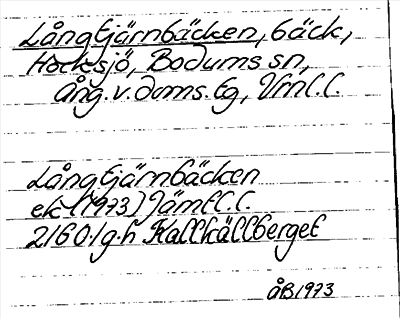 Långtjärnbäcken, bäck,
Hocksjö, Bodums sn,
Ång. v. doms. tg, Vrnl. l.
Långtjärnbäcken
ek (1973) Jämtl. l.
2160/g-h Kallkällberget
ÅB 1973